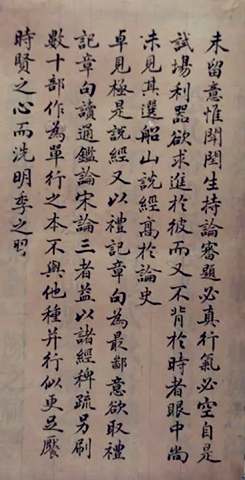 未留意惟閱閱生持論審題必真行氣必空自是
試場利器欲求進於彼而又不背於時者眼中尚
未見其選船山說經高於論史
卓見極是說經又以禮記章句為最鄙意欲取禮
記章句讀通鑑論宋論三者益以諸經稗疏另刷
數十部作為單行之本不與他種并行似更足饜
時賢之心而洗明季之習